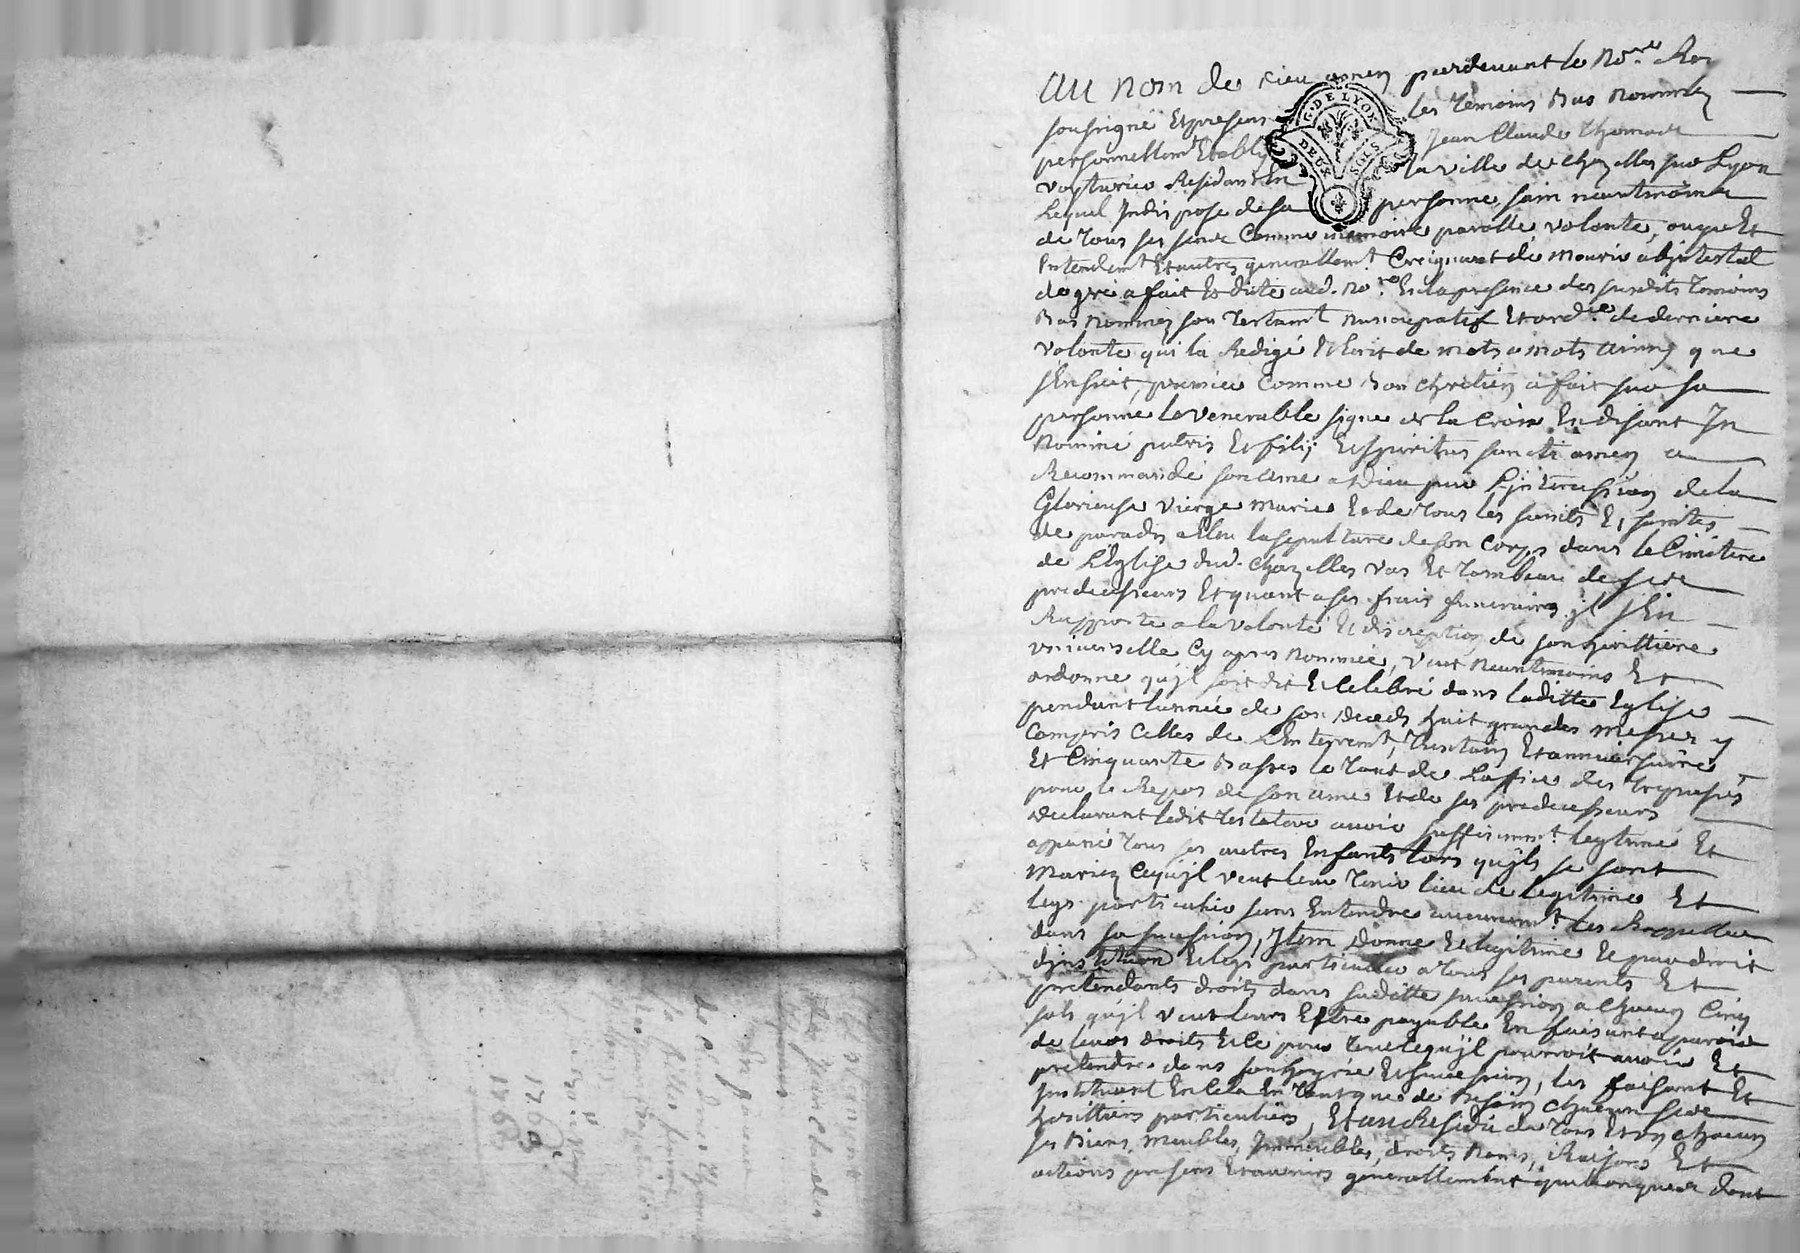 Au nom de Dieu amen pardevant le No.re Roy
soussigné Et presens les Temoins Bas nommés
personnellemt Etably Jean Claude Thomas
voyturier Residant En la ville de chazelles sur Lyon
Lequel Indispose de sa personne, sain neantmoins
de tous ses sens Comme memoire parolle volonté, ouye Et
Entendemt Et autres generallemt. Creignant de mourir abjntestat
de gré a fait Et dicté aud. No.re En la presence des susdits Temoins
Bas nommés son Testamt nuncupatif Et ord.ce de derniere
volonté qui la Redigé Et Ecrit de mots a mots ainsy que
sEnsuit, premier Comme Bon chretien a fait sur sa
personne le venerable signe de la Croix En disant Jn
Nominé patris Et filij Et spiritus sancti amen a
Recommandé son ame a Dieu par Ljntercession de la
Glorieuse vierge Marie Et de tous les saints Et saintes
de paradis Esleu la sepulture de son Corps dans le Cimetiere
de LEglise dud. chazelles vas Et Tombeau de ses
predecesseurs Et quant a ses frais funeraires jl sEn
Rapporte a la volonté Et discreption de son herittiere
universelle Cy apres nommée, veut neantmoins Et
ordonne qujl soit dit Et Celebré dans laditte Eglise
pendant lannée de son deceds huit grandes messes y
Compris Celles de LEnterremt, Trentain Et anniversaire
Et Cinquante Basses le tout de Loffice des Trepassés
pour le Repos de son ame Et de ses predecesseurs
declarant ledit Testateur avoir suffisammt. legitimé Et
appané tous ses autres Enfants lors qujls se sont
Mariés Ce qujl veut leur tenir lieu de legitime Et
legs particulier sans Entendre aucunemt Les Rappeller
dans sa succession, Jtem donne Et legitime Et par droit
djnstitution Et legs particulier a tous ses parents Et
pretendants droits dans saditte succession a chacun Cinq
sols qujl veut leurs Estre payable En faisant aparoir
de leurs droits Et Ce pour tout Ce qujl pourroit avoir Et
pretendre dans son hoyrie Et succession, les faisant Et
Jnstituant En Cela En tant que de Besoin chacun ses
herittiers particuliers, Et au Residu de tous Et un chacun
ses Biens, Meubles, Jmmeubles, droits Noms, Raisons Et
actions presens Et avenirs generallement quelconques dont
G. DE LYON
DEUX SOLS
Testament
de Jean Claude
Thomas
En faveur
1760
1760